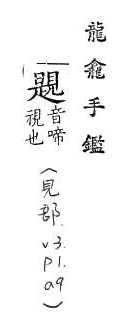 龍龕手鑑
䚣
音啼
視也
(見部.
v3.
p1.
a9)